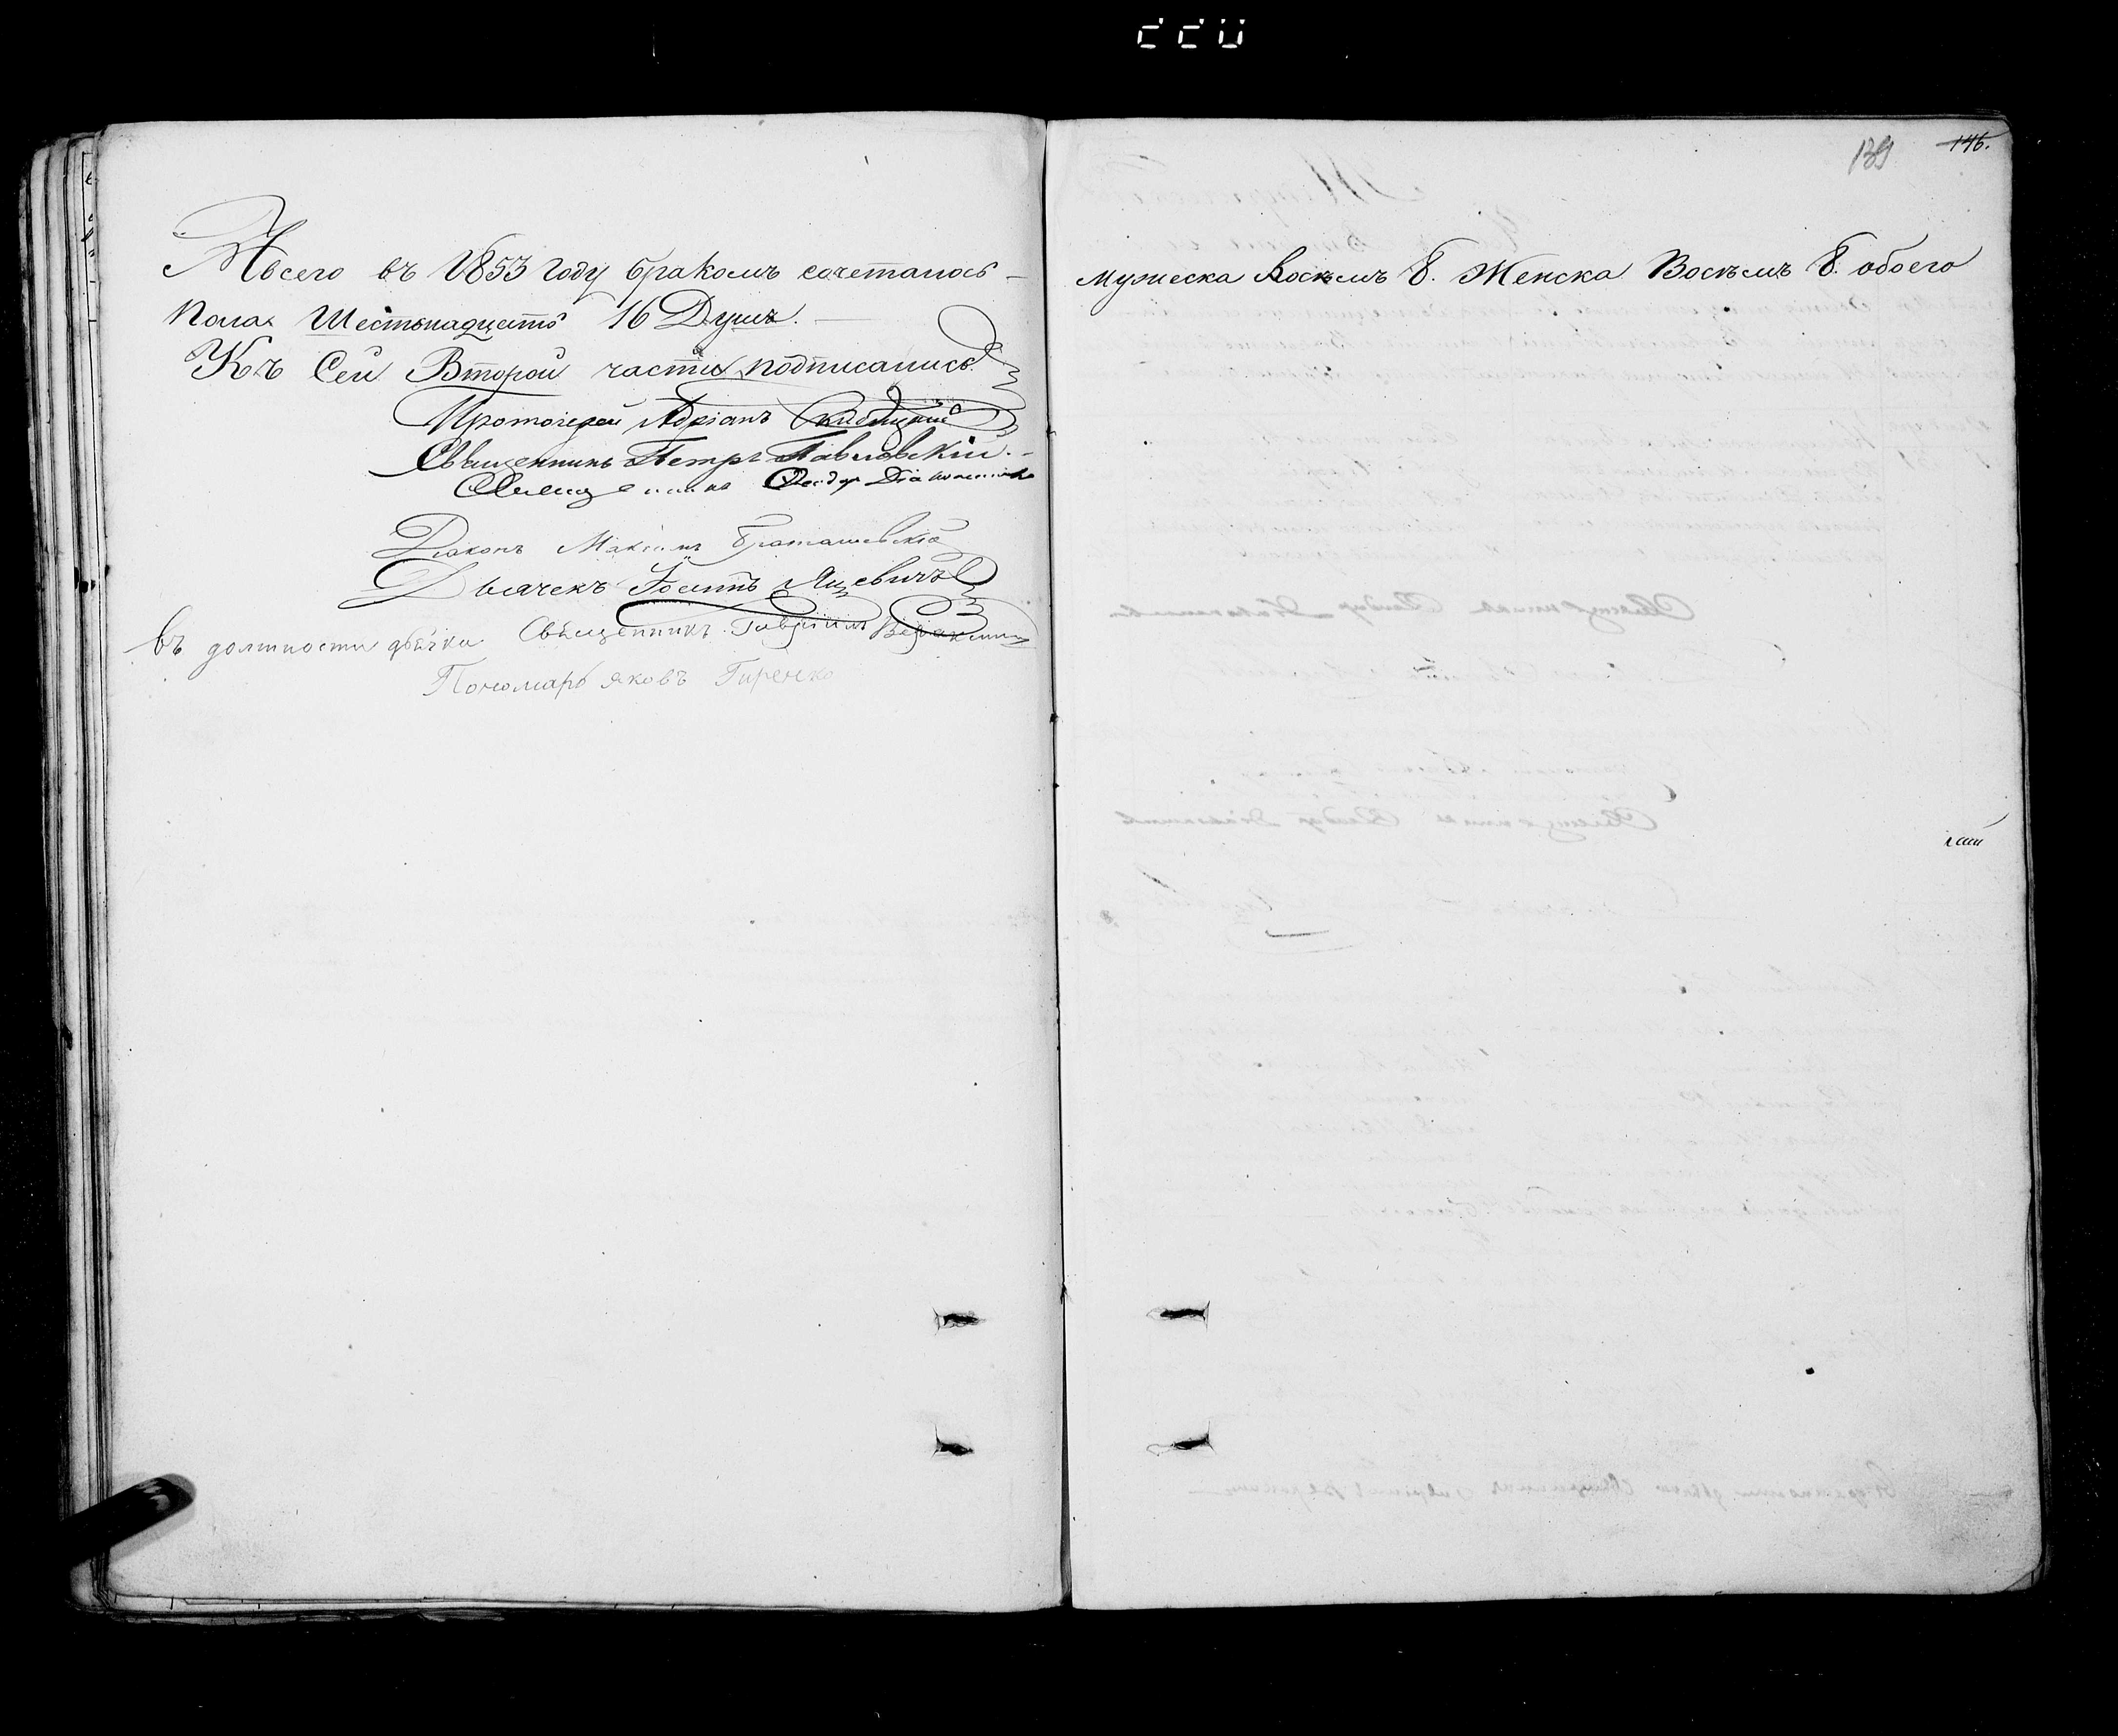 Авсего въ 1853 году бракомъ сочеталось –
мужеска восѣмъ 8. Женска Восѣмъ 8. обоего
Пола Шестьнадцать 16 Душъ. –
Къ Сей Второй части подписались
Протоіерей Адріанъ
Священникъ Петръ Павловскій. –
Священникъ Феодоръ
Діаконъ Максимъ
Дьячекъ Іосифъ Яцевичъ
въ должности дьячка Священникъ Гавріилъ
Пономарь Яковъ Гиренко
139
146.